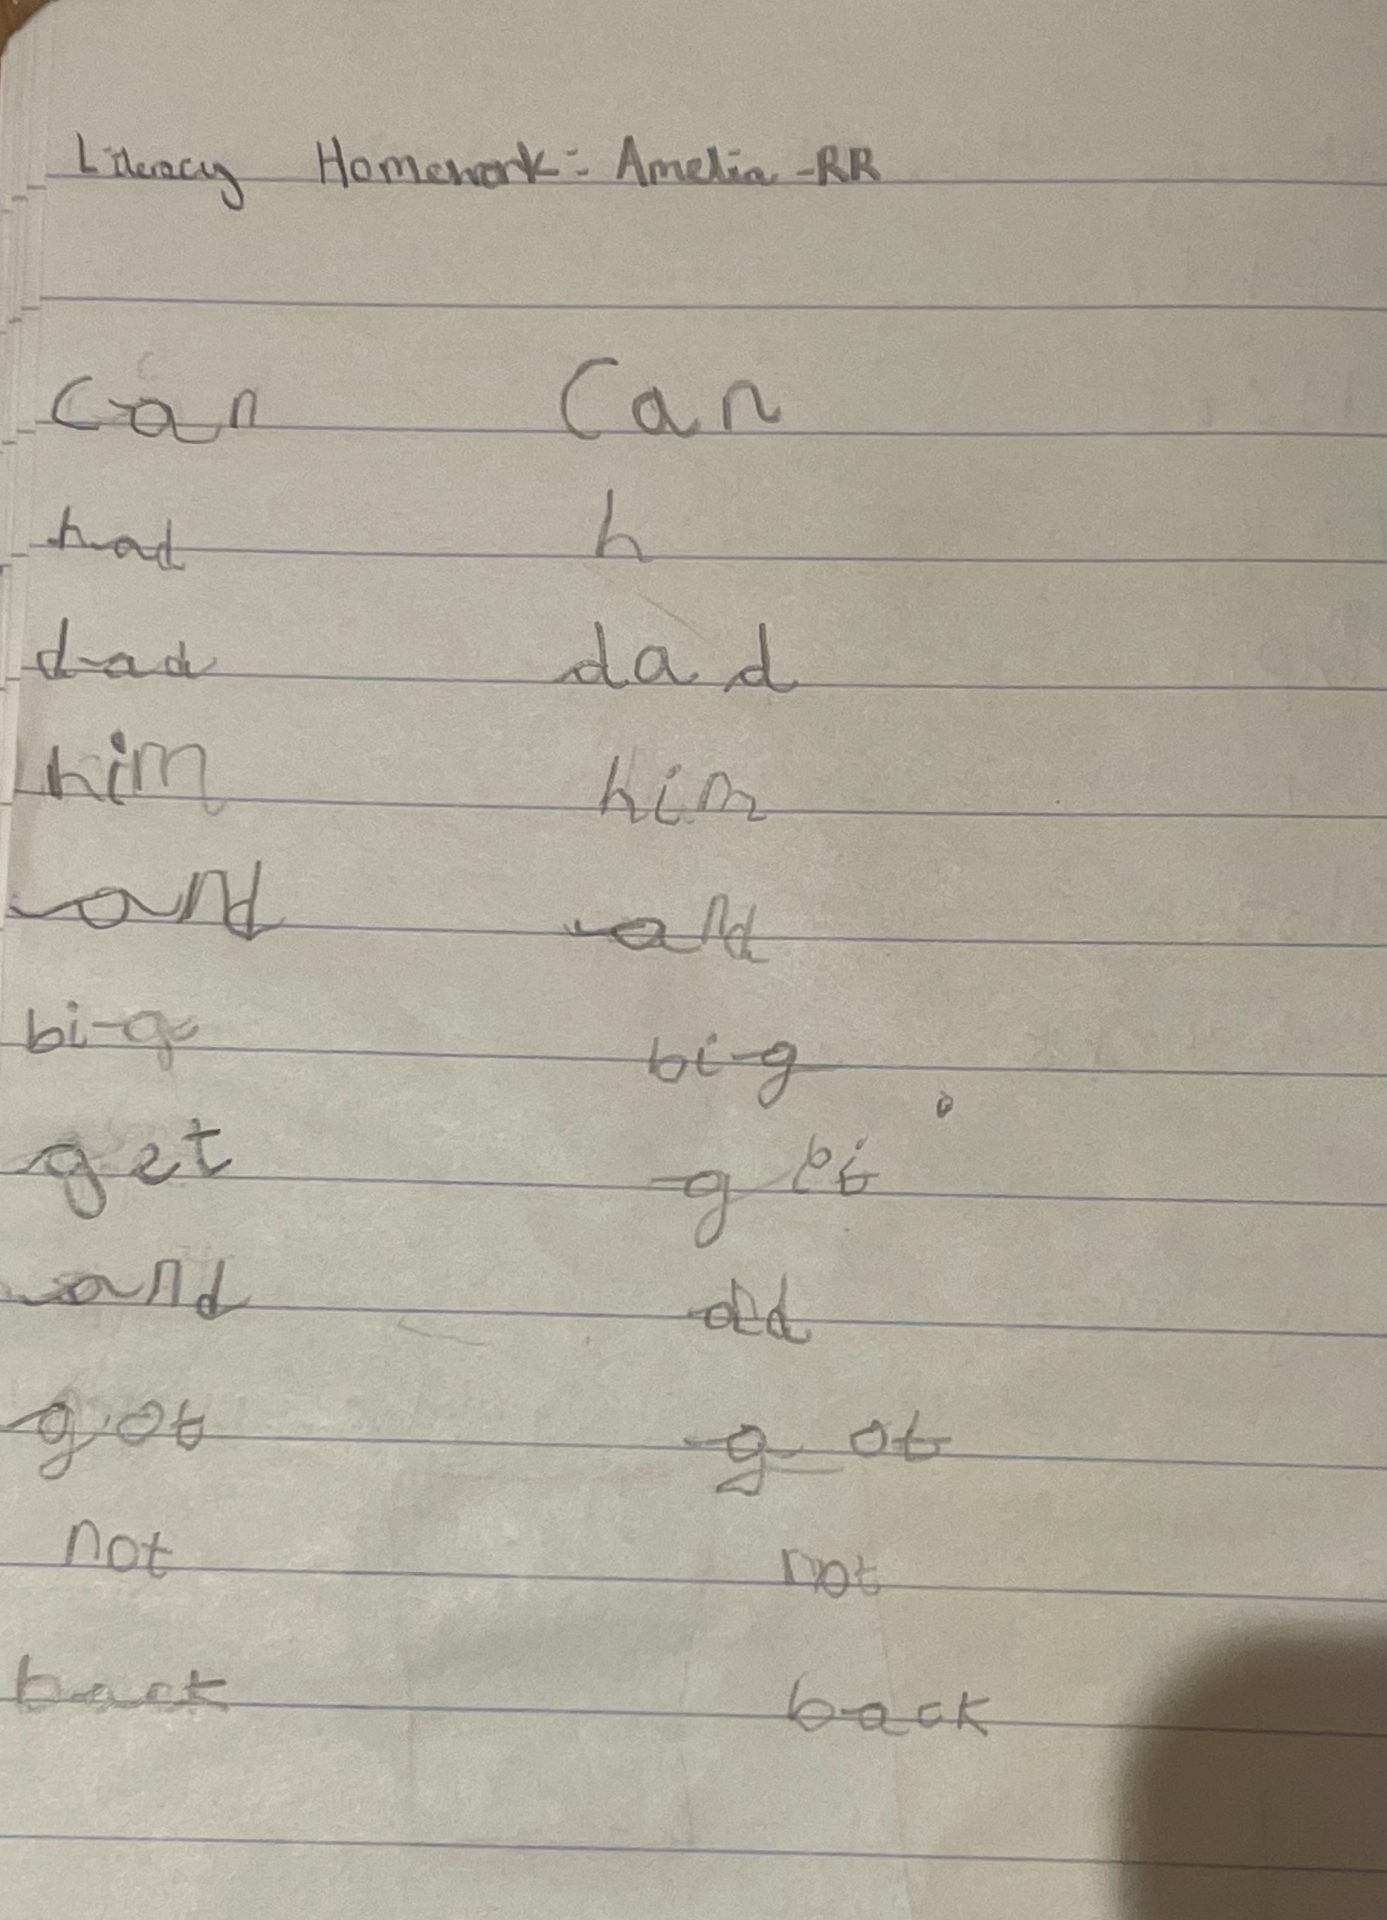 Literacy Homework: Amelia - RR
can can
had h
dad dad
him him
and and
big big
get get
and and
got got
not not
back back